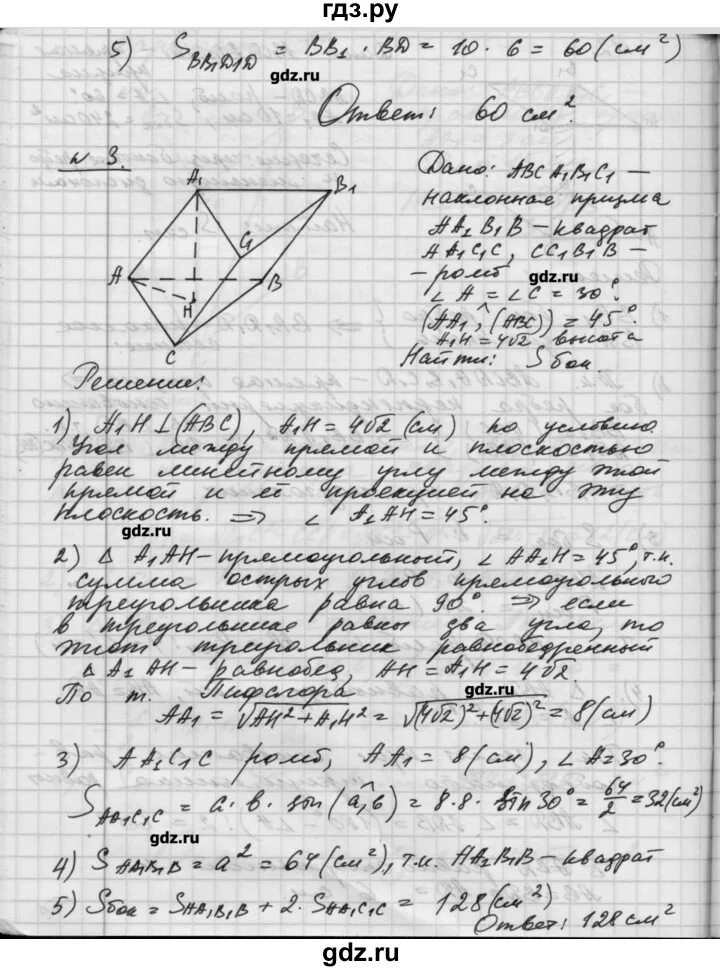 гдз.ру
5) S_BB1D1D = BB₁ · BD = 10 · 6 = 60 (см²)
gdz.ru
Ответ: 60 см².
№ 3.
A₁ B₁
C₁
A B
H
C
Дано: ABCA₁B₁C₁ —
наклонная призма
AA₁B₁B – квадрат
AA₁C₁C, CC₁B₁B –
– ромб
gdz.ru
∠A = ∠C = 30°.
(AA₁, ^(ABC)) = 45°.
A₁H = 4√2 высота
Найти: Sбок.
Решение:
1) A₁H ⊥ (ABC), A₁H = 4√2 (см) по условию.
Угол между прямой и плоскостью
равен линейному углу между этой
прямой и её проекцией на эту
плоскость. ⇒ ∠ A₁AH = 45°.
gdz.ru
2) Δ A₁AH – прямоугольный, ∠ AA₁H = 45°, т.к.
сумма острых углов прямоугольного
треугольника равна 90°. ⇒ если
в треугольнике равны два угла, то
этот треугольник равнобедренный
Δ A₁AH – равнобед, AH = A₁H = 4√2.
gdz.ru
По т. Пифагора
AA₁ = √(AH² + A₁H²) = √((4√2)² + (4√2)²) = 8 (см)
3) AA₁C₁C ромб, AA₁ = 8 (см), ∠A = 30°.
S_AA₁C₁C = a · b · sin (a,^b) = 8 · 8 · sin 30° = 64/2 = 32 (см²)
gdz.ru
4) S_AA₁B₁B = a² = 64 (см²), т.к. AA₁B₁B – квадрат
5) Sбок = S_AA₁B₁B + 2 · S_AA₁C₁C = 128 (см²)
Ответ: 128 см²
gdz.ru